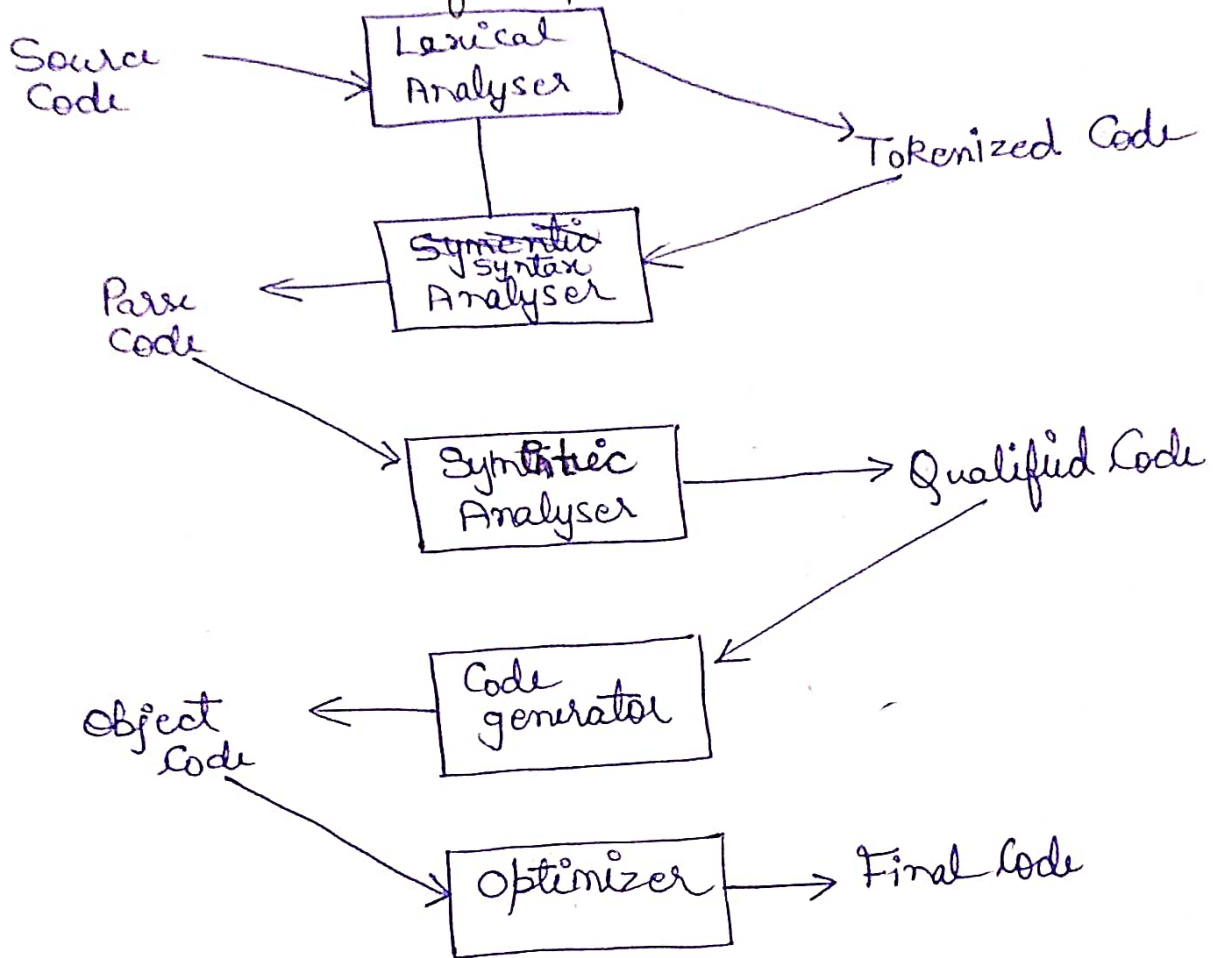 Source
Code
Lexical
Analyser
Tokenized Code
Syntax
Analyser
Parse
Code
Analyser
Qualified Code
Code
generator
Object
Code
Optimizer
Final Code